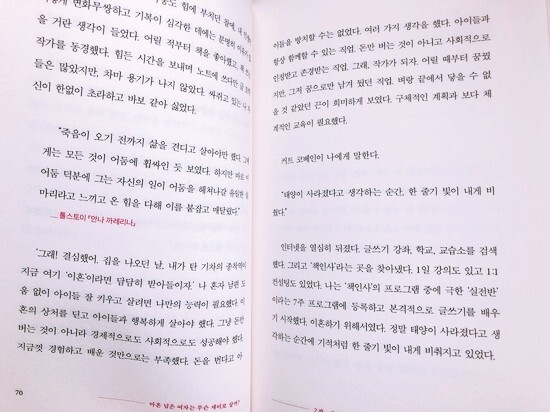 변화무쌍하고 기복이 심각한 데에는 분명히
을 거란 생각이 들었다. 어릴 적부터 책을 좋아했고,
작가를 동경했다. 힘든 시간을 보내며 노트에 쓰다만 글
들은 많았지만, 차마 용기가 나지 않았다. 싸쥐고 있는 나
신이 한없이 초라하고 바보 같아 싫었다.
"죽음이 오기 전까지 삶을 견디고 살아야만 했다. 그에
게는 모든 것이 어둠에 휩싸인 듯 보였다. 하지만 바로
어둠 덕분에 그는 자신의 일이 어둠을 헤쳐나갈 유일한
마리라고 느끼고 온 힘을 다해 이를 붙잡고 매달렸다."
_ 톨스토이 『안나 까레리나』
'그래! 결심했어, 집을 나오던 날, 내가 탄 기차의 종착역이
지금 여기 '이혼'이라면 담담히 받아들이자.' 나 혼자 남편 도
움 없이 아이들 잘 키우고 살려면 나만의 능력이 필요했다. 이
혼의 상처를 딛고 아이들과 행복하게 살아야 했다. 그냥 돈만
버는 것이 아니라 경제적으로도 사회적으로도 성공해야 했다.
지금껏 경험하고 배운 것만으로는 부족했다. 돈을 번다고 아
70
마흔 넘은 여자는 무슨 재미로 살까?
이들을 방치할 수는 없었다. 여러 가지 생각을 했다. 아이들과
항상 함께할 수 있는 직업. 돈만 버는 것이 아니고 사회적으로
인정받고 존경받는 직업. 그래, 작가가 되자. 어릴 때부터 꿈꿨
지만, 그저 꿈으로만 남겨 뒀던 직업. 벼랑 끝에서 닿을 수 없
을 것 같았던 끈이 희미하게 보였다. 구체적인 계획과 보다 체
계적인 교육이 필요했다.
커트 코베인이 나에게 말한다.
"태양이 사라졌다고 생각하는 순간, 한 줄기 빛이 내게 비
췄다."
인터넷을 열심히 뒤졌다. 글쓰기 강좌, 학교, 교습소를 검색
했다. 그리고 '책인사'라는 곳을 찾아냈다. 1일 강의도 있고 1:1
컨설팅도 있었다. 나는 '책인사'의 프로그램 중에 극한 '실전반'
이라는 7주 프로그램에 등록하고 본격적으로 글쓰기를 배우
기 시작했다. 이혼하기 위해서였다. 정말 태양이 사라졌다고 생
각하는 순간에 기적처럼 한 줄기 빛이 내게 비춰지고 있었다.
2장